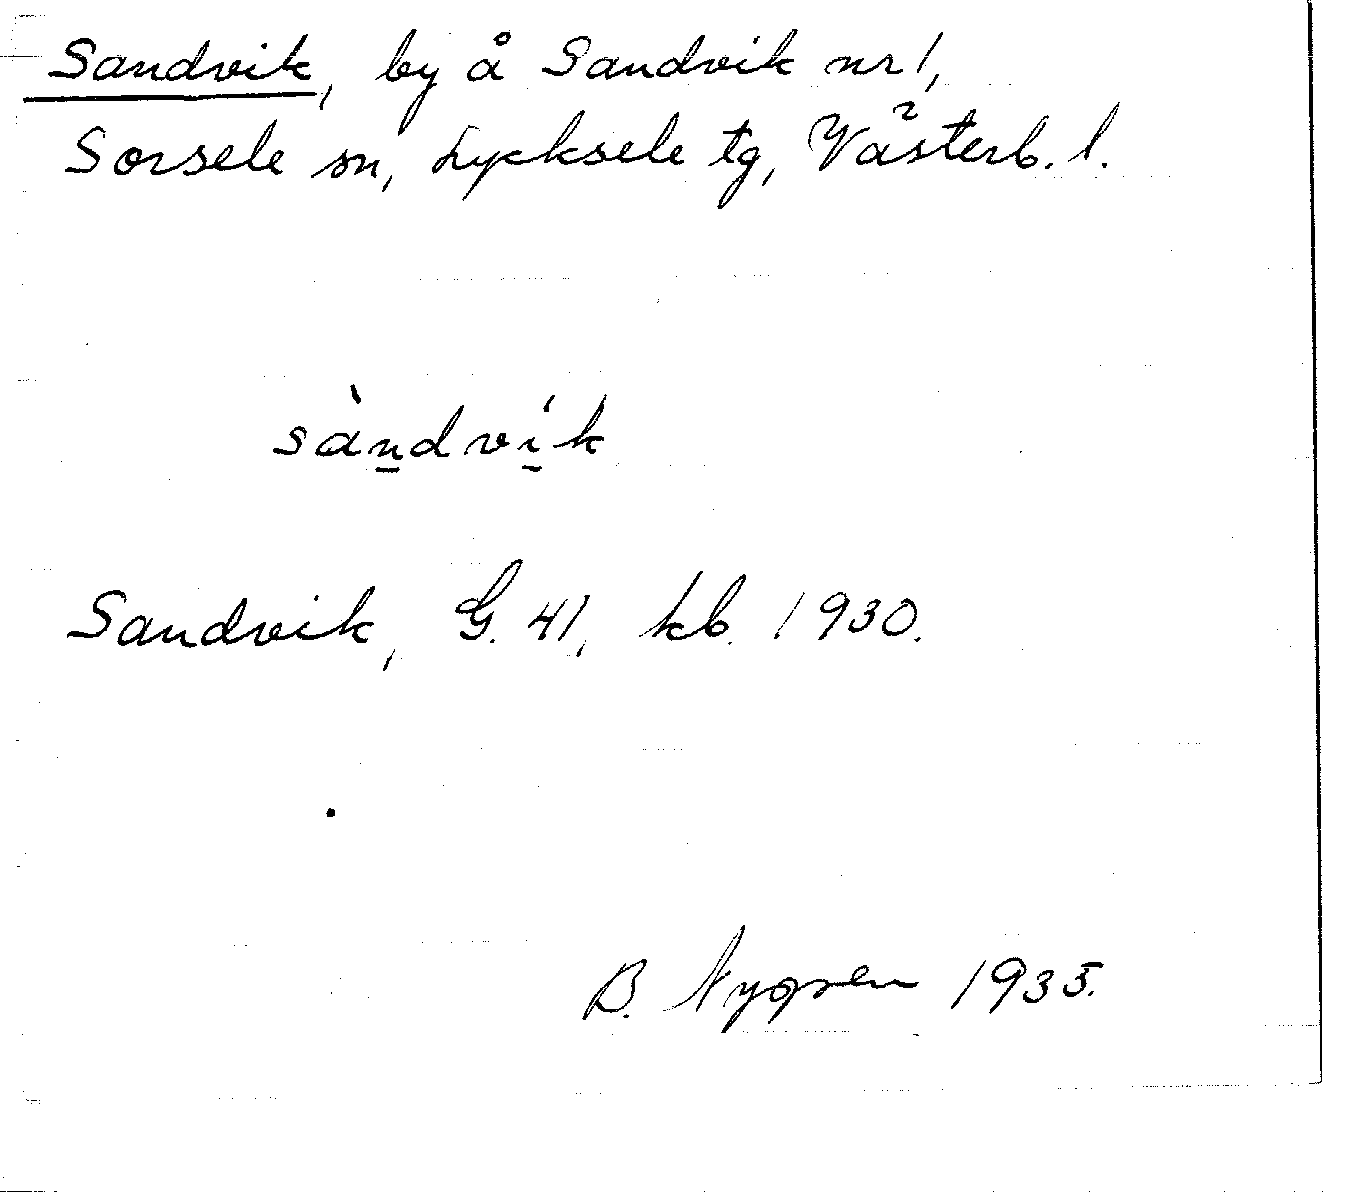 Sandvik, by å Sandvik nr 1,
Sorsele sn, Lycksele tg, Västerb. l.
sàn̲dví̲k
Sandvik, G. 41, kb. 1930.
B. Nygren 1935.